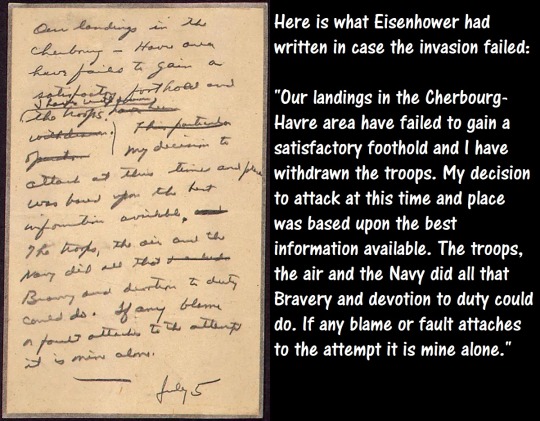 Our landings in the
Cherbourg – Havre area
have failed to gain a
satisfactory foothold and
I have withdrawn
the troops, have been
withdrawn. This particular
operation My decision to
attack at this time and place
was based upon the best
information available, and
The troops, the air and the
Navy did all that
Bravery and devotion to duty
could do. If any blame
or fault attaches to the attempt
it is mine alone.
July 5
Here is what Eisenhower had
written in case the invasion failed:
"Our landings in the Cherbourg-
Havre area have failed to gain a
satisfactory foothold and I have
withdrawn the troops. My decision
to attack at this time and place
was based upon the best
information available. The troops,
the air and the Navy did all that
Bravery and devotion to duty could
do. If any blame or fault attaches
to the attempt it is mine alone."